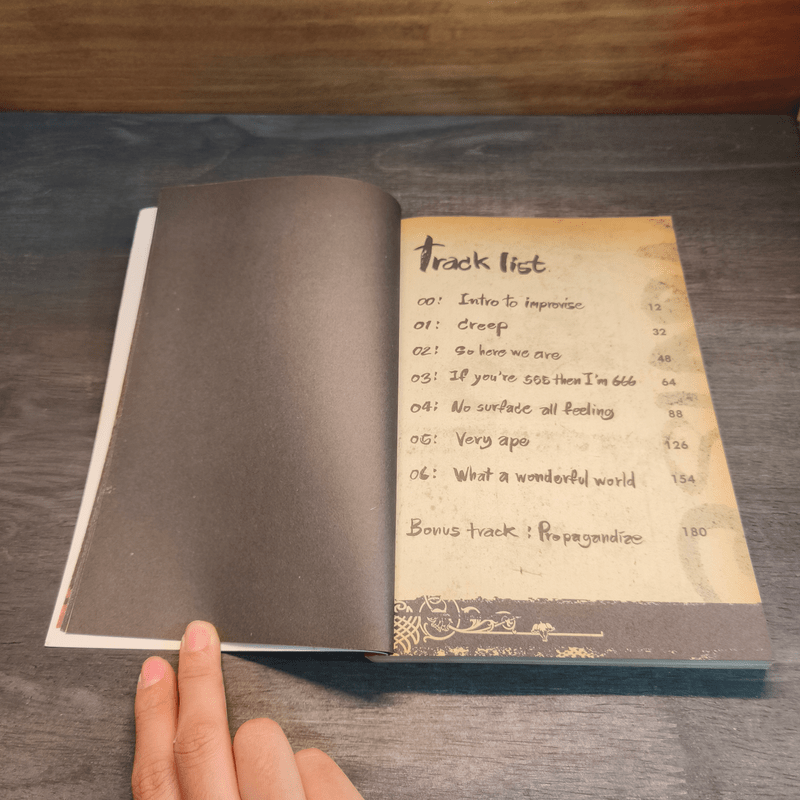 Track list
00: Intro to improvise 12
01: Creep 32
02: So here we are 48
03: If you're 555 then I'm 666 64
04: No surface all feeling 88
05: Very ape 126
06: What a wonderful world 154
Bonus track : Propagandize 180